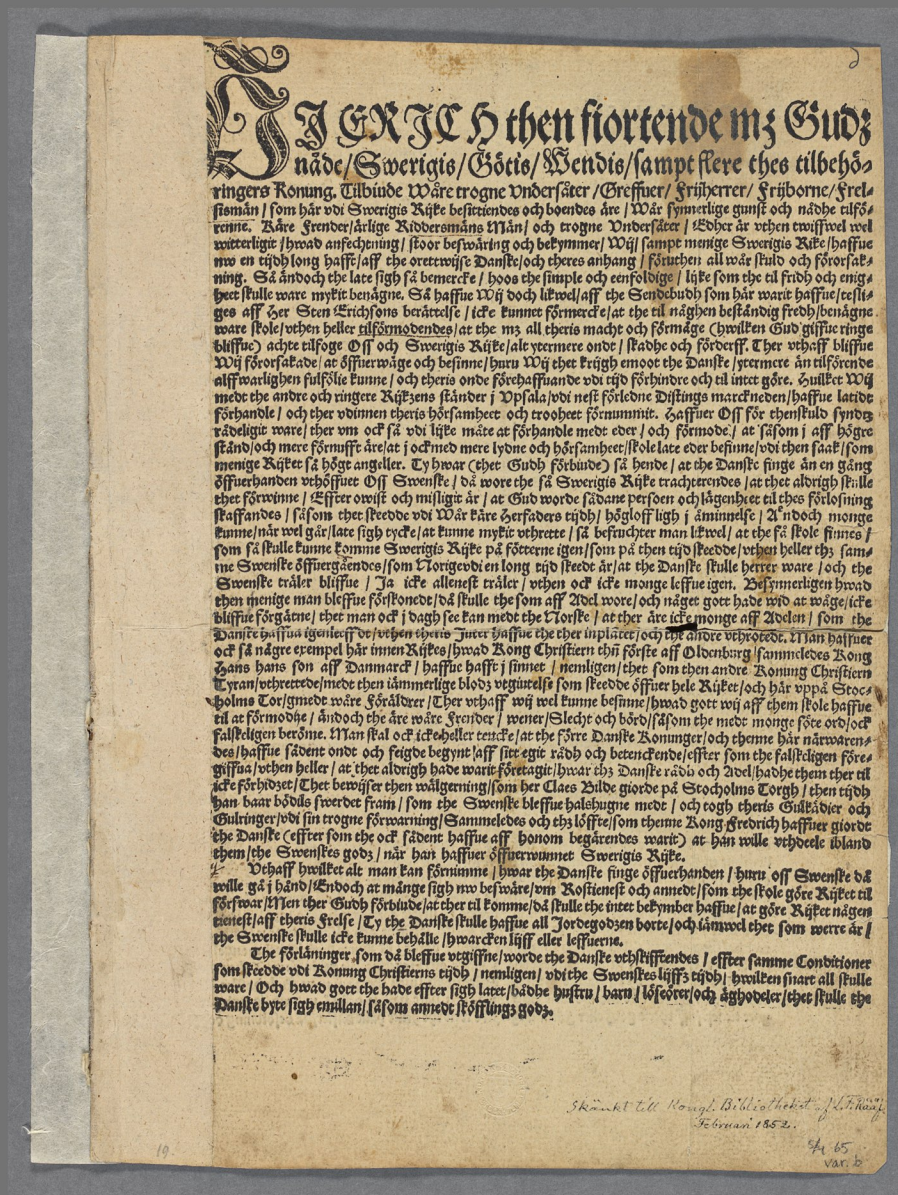 WIJ ERICH then fiortende mz Gudz
nåde/Swerigis/Götis/Wendis/sampt flere thes tilbehö-
ringers Konung. Tilbiude Wåre trogne Vndersåter/Greffuer/Frijherrer/Frijborne/Frel-
sismän/som här vdi Swerigis Rijke besittiendes och boendes äre/Wår synnerlige gunst och nådhe tilfö-
renne. Käre Frender/ärlige Riddersmäns Män/och trogne Vndersåter/Edher är vthen twiffwel wel
witterligit/hwad anfechtning/stoor beswäring och bekymmer/Wij/sampt menige Swerigis Rike/haffue
nw en tijdh long hafft/aff the orettwijse Danske/och theres anhang/föruthen all wår skuld och förorsak-
ning. Så ändoch the late sigh så bemercke/hoos the simple och eenfoldige/lijke som the til fridh och enig-
heet skulle ware mykit benägne. Så haffue Wij doch likwel/aff the Sendebudh som här warit haffue/tesli-
ges aff Her Sten Erichsons berättelse/icke kunnet förmercke/at the til näghen beständig fredh/benägne
ware skole/vthen heller tilförmodendes/at the mz all theris macht och förmåge (hwilken Gud giffue ringe
bliffue) achte tilfoge Oss och Swerigis Rijke/alt ytermere ondt/skadhe och förderff. Ther vthaff bliffue
Wij förorsakade/at öffuerwäge och besinne/huru Wij thet krijgh emoot the Danske/ytermere än tilförende
alffwarlighen fulfölie kunne/och theris onde förehaffuande vdi tijd förhindre och til intet göre. Huilket Wij
medt the andre och ringere Rijkzens ständer j Vpsala/vdi nest förledne Distings marckneden/haffue latidt
förhandle/och ther vdinnen theris hörsamheet och trooheet förnummit. Haffuer Oss för thenskuld syndz
rådeligit ware/ther vm ock så vdi lijke måte at förhandle medt eder/och förmode/at såsom j aff högre
stånd/och mere förnufft äre/at j ock med mere lydne och hörsamheet/skole late eder befinne/vdi then saak/som
menige Rijket så högt angeller. Ty hwar (thet Gudh förbiude) så hende/at the Danske finge än en gång
öffuerhanden vthöffuet Oss Swenske/då wore the så Swerigis Rijke trachterendes/at thet aldrigh skulle
thet förwinne/Effter owist och misligit är/at Gud worde sådane persoen och lägenheet til thes förlosning
skaffandes/såsom thet skeedde vdi Wår käre Herfaders tijdh/högloffligh j åminnelse/Ändoch monge
kunne/när wel går/late sigh tycke/at kunne mykit vthrette/så befruchter man likwel/at the få skole finnes/
som så skulle kunne komme Swerigis Rijke på fötterne igen/som på then tijd skeedde/vthen heller thz sam-
me Swenske öffuergåendes/som Norige vdi en long tijd skeedt är/at the Danske skulle herrer ware/och the
Swenske träler bliffue/Ja icke allenest träler/vthen ock icke monge leffue igen. Besynnerligen hwad
then menige man bleffue förskonedt/då skulle the som aff Adel wore/och någet gott hade wid at wåge/icke
bliffue förgätne/thet man ock j dagh see kan medt the Norske/at ther äre icke monge aff Adelen/som the
Danske haffua igenleeffdt/vthen theris Juter haffue the ther inplåtet/och the andre vthrotedt. Man haffuer
ock så någre exempel här innen Rijkes/hwad Kong Christiern thn förste aff Oldenburg/sammeledes Kong
Hans hans son aff Danmarck/haffue hafft j sinnet/nemligen/thet som then andre Konung Christiern
Tyran/vthrettede/medt then iämmerlige blodz vtgiutelse som skeedde öffuer hele Rijket/och här vppå Stoc-
holms Tor/gmedt wåre Föräldrer/Ther vthaff wij wel kunne besinne/hwad gott wij aff them skole haffue
til at förmodhe/ändoch the äre wåre Frender/wener/Slecht och börd/såsom the medt monge söte ord/ock
falskeligen beröme. Man skal ock icke heller tencke/at the förre Danske Konunger/och thenne här närwaren-
des/haffue sådent ondt och feigde begynt aff sitt egit rådh och betenckende/effter som the falskeligen före-
giffua/vthen heller/at thet aldrigh hade warit företagit/hwar thz Danske rådh och Adel/hadhe them ther til
icke förhidzet/Thet bewijser then wälgerning/som her Claes Bilde giorde på Stocholms Torgh/then tijdh
han baar bödils swerdet fram/som the Swenske bleffue halshugne medt/och togh theris Gulkädier och
Gulringer/vdi sin trogne förwarning/Sammeledes och thz löffte/som thenne Kong Fredrich haffuer giordt
the Danske (effter som the ock sådent haffue aff honom begärendes warit) at han wille vthdeele ibland
them/the Swenskes godz/när han haffuer öffuerwunnet Swerigis Rijke.
Vthaff hwilket alt man kan förnimme/hwar the Danske finge öffuerhanden/huru oss Swenske då
wille gå j hånd/Endoch at månge sigh nw beswäre/vm Rostienest och annedt/som the skole göre Rijket til
förswar/Men ther Gudh förbiude/at ther til komme/då skulle the intet bekymber haffue/at göre Rijket någen
tienest/aff theris Frelse/Ty the Danske skulle haffue all Jordegodzen borte/och iämwel thet som werre är/
the Swenske skulle icke kunne behålle/hwarcken lijff eller leffuerne.
The förläninger som då bleffue vtgiffne/worde the Danske vthskifftendes/effter samme Conditioner
som skeedde vdi Konung Christierns tijdh/nemligen/vdi the Swenskes lijffz tijdh/hwilken snart all skulle
ware/Och hwad gott the hade effter sigh latet/bådhe hustru/barn/löseörer/och äghodeler/thet skulle the
Danske byte sigh emillan/såsom annedt sköfflingz godz.
Skänkt till Kongl. Bibliotheket af L. F. Rääf
Februari 1852.
19.
65
var. b